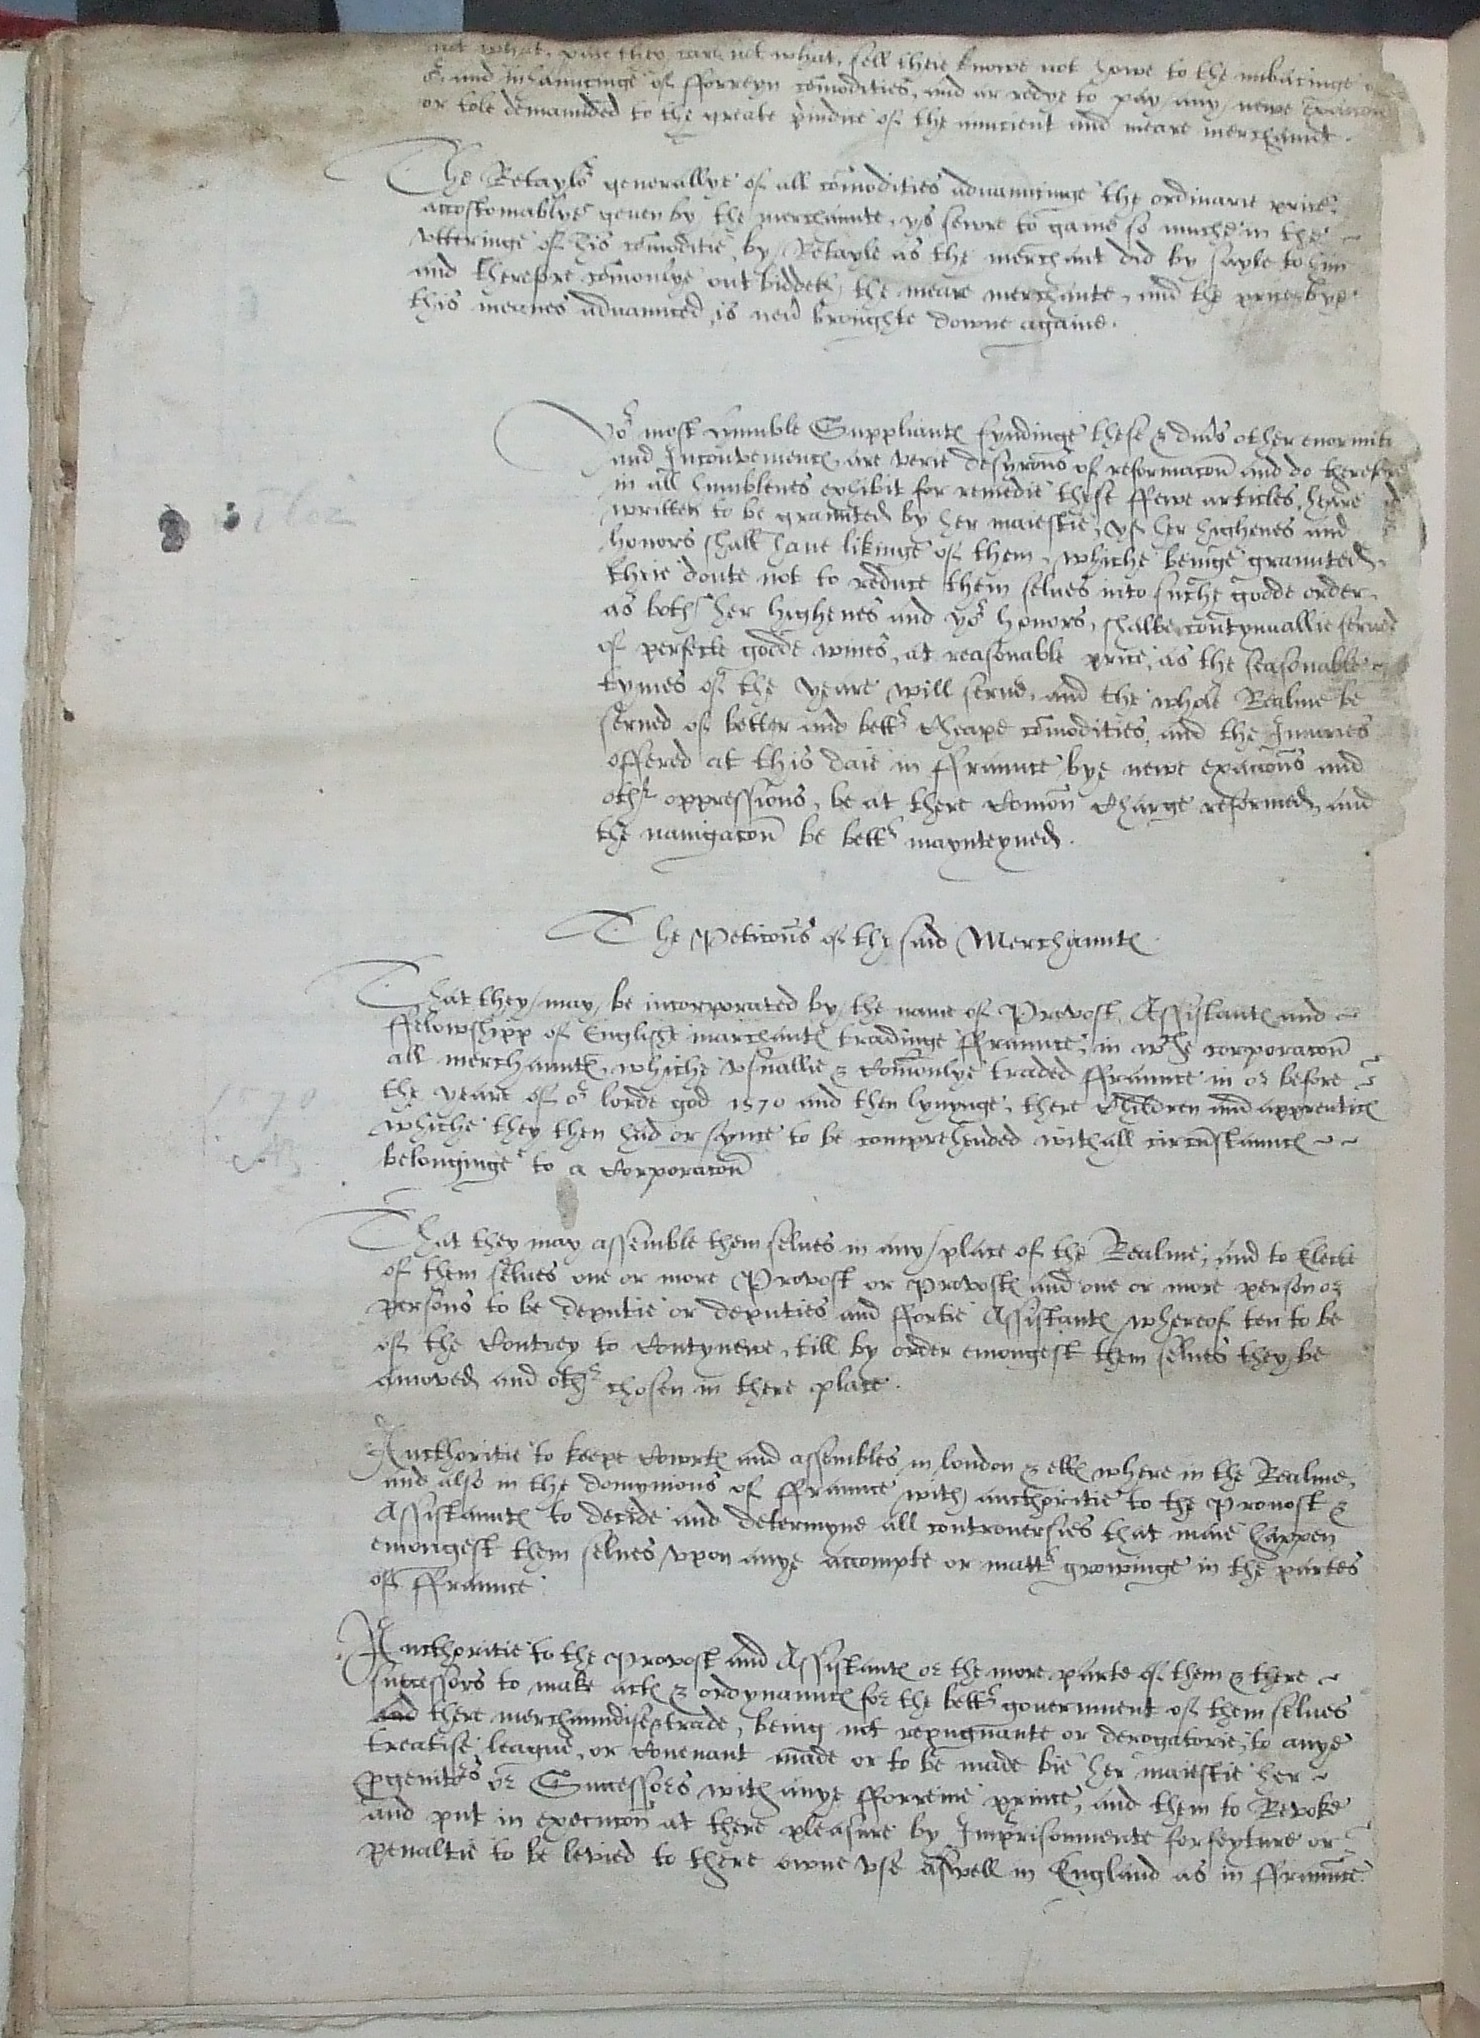 not what, paie they care not what, sell theie knowe not howe to the imbasinge
& and inhauncinge of fforreyn comodities, and ar redye to pay any newe exacion
or tole demaunded to the greate p̱iudice of the auncient and meare merchaunt.
The Retaylor generallye of all comodities aduauncinge the ordinarie price
accostomablye geuen by the merchaunte, ys sewre to gaine so muche in the
vtteringe of his comoditie by Retayle as the merchant did by sayle to him
and therefore comonlye out biddeth the meare merchante, and the price bye
this meanes aduaunced is neuer broughte downe againe.
Yor most humble Suppliantes fyndinge these & diuers other enormit
and Inconveniences are verie desyrous of reformacon and do therefore
in all humblenes exhibit for remedie these ffewe articles heare
written to be graunted by her maiestie, yf her highenes and
honors shall haue likinge of them, whiche beinge graunted,
theie doute not to reduce them selues into suche goode order,
as both her highenes and yor honors, shalbe contynuallie serued
of perfecte goode wines, at reasonable price, as the seasonable
tymes of the yeare will serue, and the whole Realme be
serued of better and better cheape comodities, and the Iniuries
offered at this daie in ffraunce bye newe exactions and
other oppressions, be at there comon charge reformed, and
the nauigacon be better maynteyned.
The Peticons of the said Merchauntes
That they may be incorporated by the name of Provost, Assistantes and
ffelowshipp of English marchantes tradinge ffraunce, in wche corporacon
all merchauntes, whiche vsuallie & comonlye traded ffraunce in or before
the yeare of or lorde god 1570 and then lyvynge, there Children and apprentices
whiche they then had or synce to be comprehended withall circumstaunces
belonginge to a Corporacon
1570
That they may assemble them selues in any place of the Realme, and to Electe
of them selues one or more Provost or provostes and one or more person or
persons to be deputie or deputies and ffortie Assistantes whereof ten to be
of the Contrey to Contynewe, till by order emongest them selues they be
amoved and other chosen in there place.
Aucthoritie to keepe Cowrtes and assembles in london & elles where in the Realme,
and also in the domynions of ffraunce with aucthoritie to the provost &
Assistauntes to decide and determyne all controuersies that maie happen
emongest them selues vpon anye accompte or matter growinge in the partes
of ffraunce.
Aucthoritie to the provost and Assistantes or the more parte of them & there
successors to make actes & ordynaunces for the better gouernment of them selues
and there merchaundise & trade, being not repugnante or derogatorie, to anye
treatise, league, or Couenant made or to be made bie her maiestie her
p̱genitors or Successors with anye fforreine prince, and them to Revoke
and put in execucon at there pleasure by Imprisonmente forfeyture or
penaltie to be levied to there owne vse aswell in England as in ffraunce.